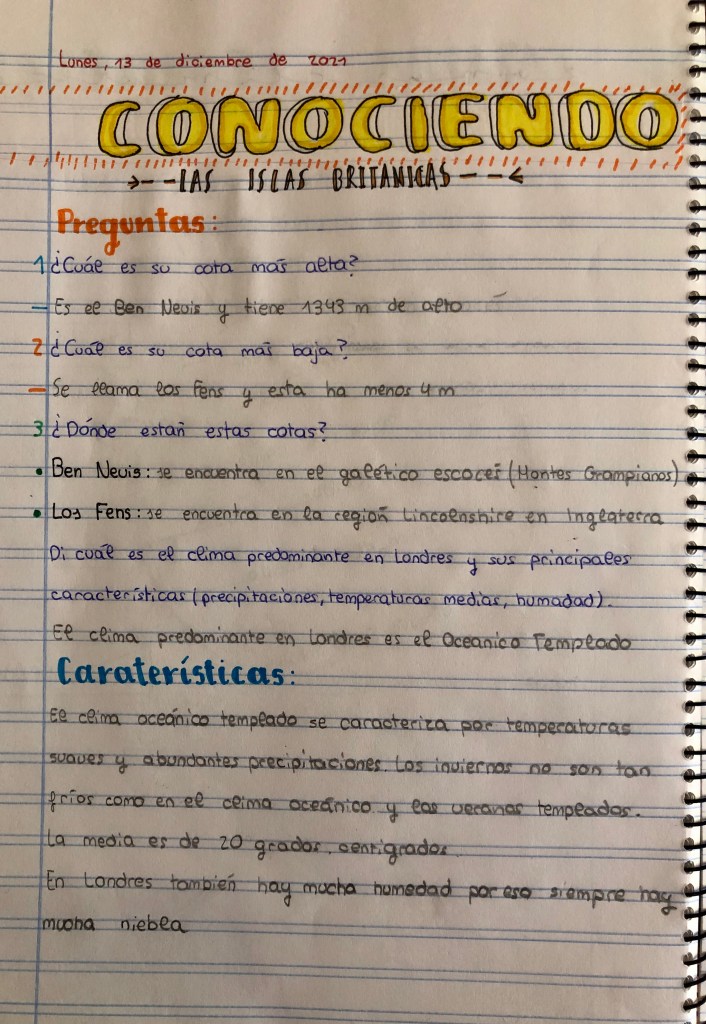 Lunes, 13 de diciembre de 2021
CONOCIENDO
LAS ISLAS BRITANICAS
Preguntas:
1 ¿Cuál es su cota más alta?
- Es el Ben Nevis y tiene 1343 m de alto
2 ¿Cuál es su cota más baja?
- Se llama los Fens y esta ha menos 4 m
3 ¿Dónde están estas cotas?
• Ben Nevis: se encuentra en el galético escocés (Montes Grampianos)
• Los Fens: se encuentra en la región Lincolnshire en Inglaterra
Di cuál es el clima predominante en Londres y sus principales
características (precipitaciones, temperaturas medias, humadad).
El clima predominante en Londres es el Oceanico Templado
Caraterísticas:
El clima oceánico templado se caracteriza por temperaturas
suaves y abundantes precipitaciones. Los inviernos no son tan
fríos como en el clima oceánico y los veranos templados.
La media es de 20 grados centigrados
En Londres también hay mucha humedad por eso siempre hay
mucha niebla